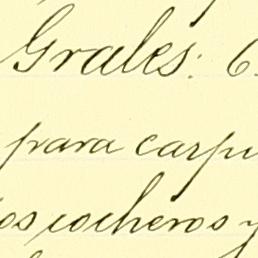 Grales: 6
para carpi
os cocheros y